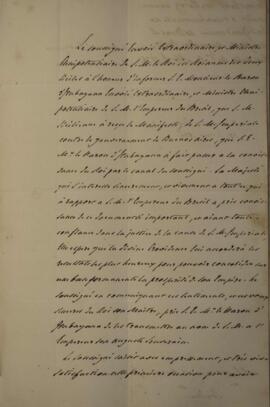 Le soussigné Envoié Extraordinaire, et Ministre
Plenipotentiaire de S. M. le Roi du Roiaume des Deux
Siciles à l'honneur d'informer S. E. Monsieur le Baron
d'Itabayana Envoié Extraordinaire, et Ministre Pleni-
potentiaire de S. M. l'Empereur du Brésil, que S. M.
Sicilienne a reçu le Manifeste, de S. M. Imperiale
contre le gouvernement de Buenos Aires, que S. E.
Mr. le Baron d'Itabayana à fait passer a la connois-
sance du Roi par le canal du soussigné. Sa Majesté
qui s'interesse sincerement, et vivement a tout ce, qui
à rapport a S. M. l'Empereur du Brésil a pris connois-
sance de ce document important, et aiant toute
confiance dans la justice de la cause de S. M. Imperiale
Elle espere que la Divine Providence lui accordera les
resultats les plus heureux pour pouvoir consolider sur
une base permanente la prosperité de son Empire. Le
soussigné en communiquant ces sentimens, et ces voeux
sinceres du Roi son Maitre, prie S. E. Mr. le Baron d'
Itabayana de les transmettre au nom de S. M. a l'
Empereur son Auguste Souverain.
Le soussigné saisit avec empressement, et très vive
satisfaction cette premiere occasion pour avoir